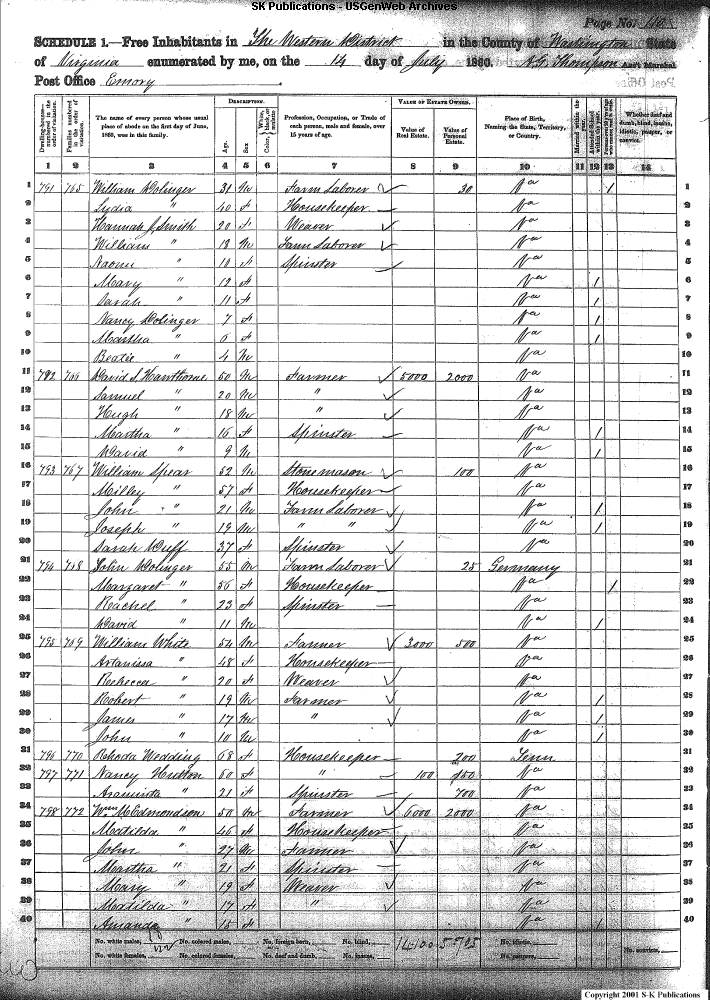 SK Publications - USGenWeb Archives
Page No. 110
SCHEDULE 1.—Free Inhabitants in The Western District in the County of Washington State
of Virginia enumerated by me, on the 14 day of July 1860. A. G. Thompson Ass't Marshal
Post Office Emory
Dwelling-houses numbered in the order of visitation.
Families numbered in the order of visitation.
The name of every person whose usual place of abode on the first day of June, 1860, was in this family.
DESCRIPTION.
Age.
Sex
Color, White, black, or mulatto
Profession, Occupation, or Trade of each person, male and female, over 15 years of age.
VALUE OF ESTATE OWNED.
Value of Real Estate.
Value of Personal Estate.
Place of Birth, Naming the State, Territory, or Country.
Married within the year.
Attended School within the year.
Whether deaf and dumb, blind, insane, idiotic, pauper, or convict.
1 2 3 4 5 6 7 8 9 10 11 12 13 14
1 791 765 William Dolinger 31 M Farm Laborer 30 Va / 1
2 Lydia " 40 f Housekeeper Va 2
3 Hannah J Smith 20 f Weaver Va 3
4 William " 18 M Farm Laborer Va 4
5 Naomi " f Spinster Va 5
6 Mary " 12 f Va / 6
7 Sarah " 11 f Va / 7
8 Nancy Dolinger 7 f Va / 8
9 Martha " 6 f Va / 9
10 " 4 M Va 10
11 792 766 David S. Hawthorne 50 M Farmer 5000 2000 Va 11
12 Samuel " 20 M " Va 12
13 Hugh " 18 M " Va 13
14 Martha " 16 f Spinster Va / 14
15 David " 9 M Va / 15
16 793 767 William Spear 52 M Stone mason 100 Va 16
17 Milly " 57 f Housekeeper Va 17
18 John " 21 M Farm Laborer Va / 18
19 Joseph " 19 M " " Va / 19
20 Sarah Duff 37 f Spinster Va 20
21 794 768 John Dolinger 55 M Farm Laborer 25 Germany 21
22 Margaret " 56 f Housekeeper Va / 22
23 Rachel " 23 f Spinster Va 23
24 David " 11 M Va / 24
25 795 769 William White 54 M Farmer 3000 500 Va 25
26 Artanissa " 48 f Housekeeper Va 26
27 Rebecca " 20 f Weaver Va 27
28 Robert " 19 M Farmer Va / 28
29 James " 17 M " Va / 29
30 John " 10 M Va / 30
31 796 770 Rhoda Wedding 68 f Housekeeper 200 Tenn 31
32 797 771 Nancy Hutton 60 f " 100 Va 32
33 Araminta " 21 f Spinster 700 Va 33
34 798 772 Wm McEdmondson 50 M Farmer 6000 2000 Va 34
35 Matilda " 46 f Housekeeper Va 35
36 John " 27 M Farmer Va 36
37 Martha " 21 f Spinster Va 37
38 Mary " 19 f Weaver Va 38
39 Matilda " 17 f " Va 39
40 Amanda " 15 f Va / 40
No. white males, No. colored males, No. foreign born, No. blind, 14100 No. idiotic,
No. white females, No. colored females, No. deaf and dumb, No. insane, No. paupers, No. convicts,
Copyright 2001 S-K Publications